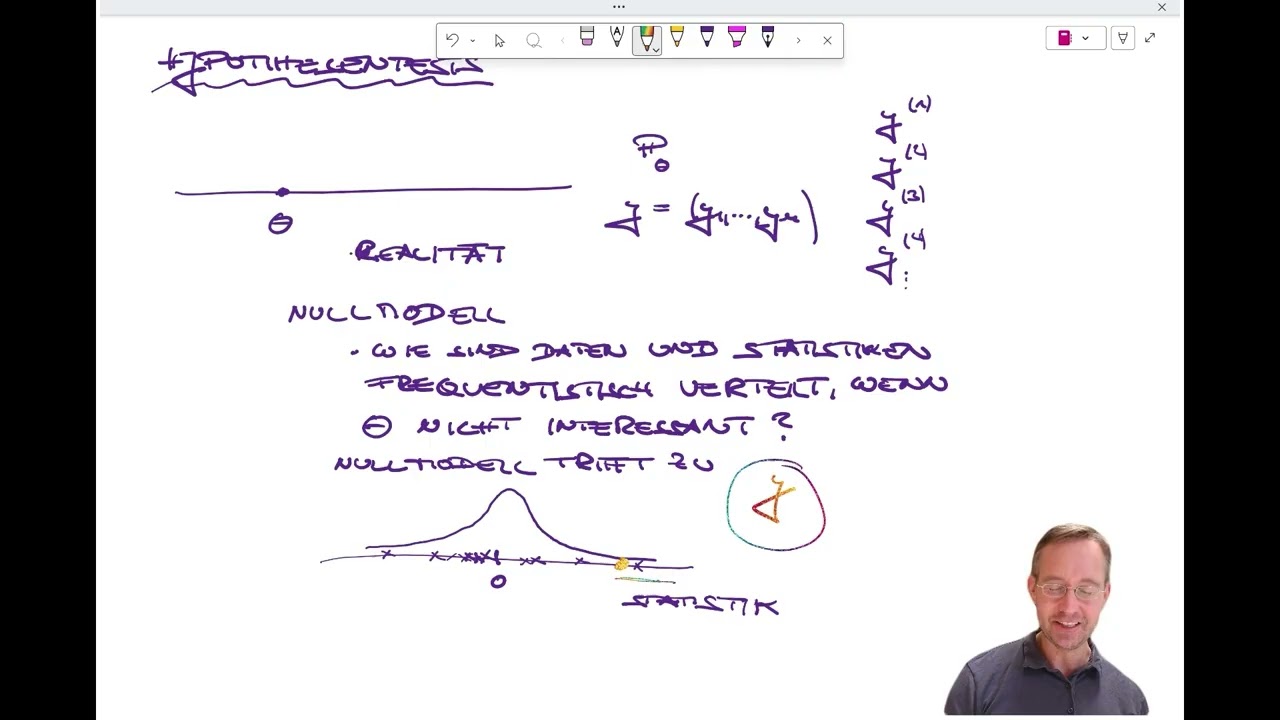 HYPOTHESENTESTS
ℙ_θ
y = (y₁, ..., yₙ)
y⁽¹⁾
y⁽²⁾
y⁽³⁾
y⁽⁴⁾
⋮
θ
· REALITÄT
NULLMODELL
· WIE SIND DATEN UND STATISTIKEN
FREQUENTISTISCH VERTEILT, WENN
θ NICHT INTERESSANT?
NULLMODELL TRIFFT ZU
y
0
STATISTIK